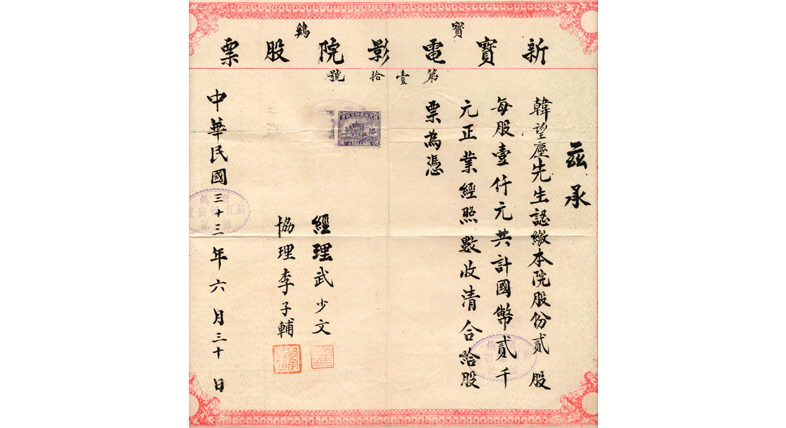 寶鷄
新寶電影院股票
第壹拾號
茲承
韓望塵先生認繳本院股份貳股
每股壹仟元共計國幣貳千
元正業經照數收清合給股
票為憑
經理武少文
協理李子輔
中華民國三十三年六月三十日